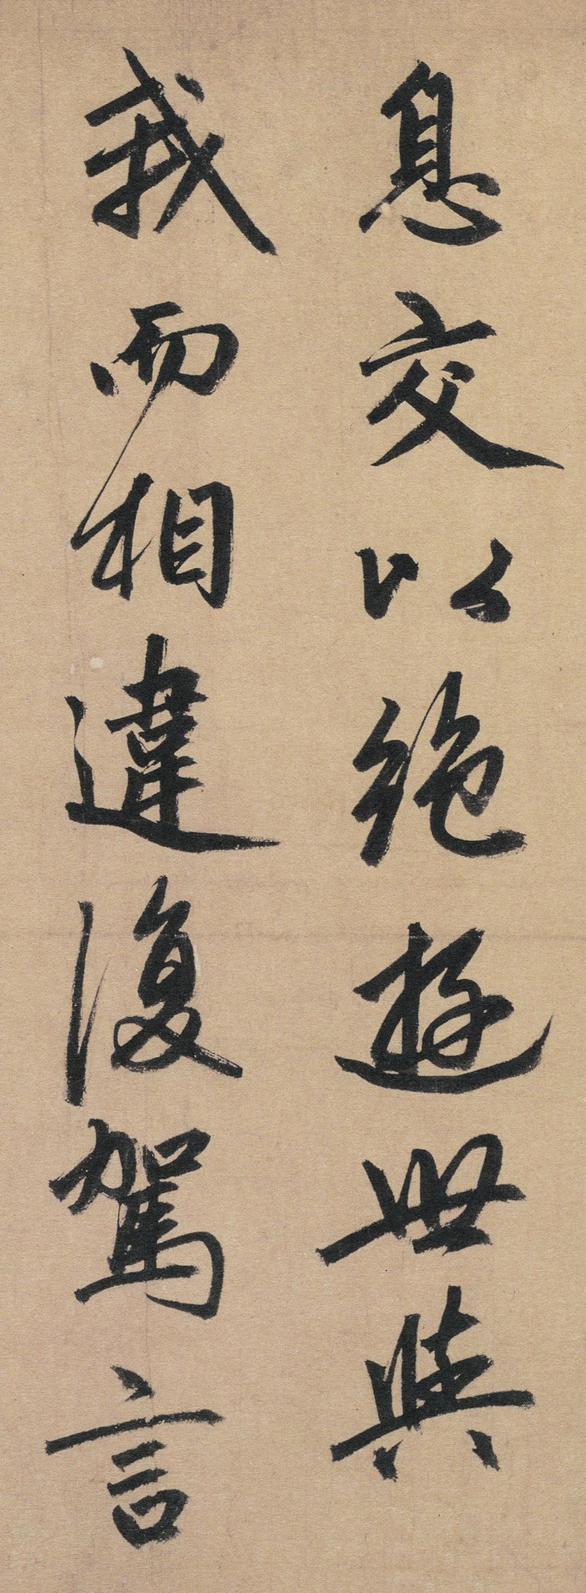 息交以絶遊世與
我而相違復駕言